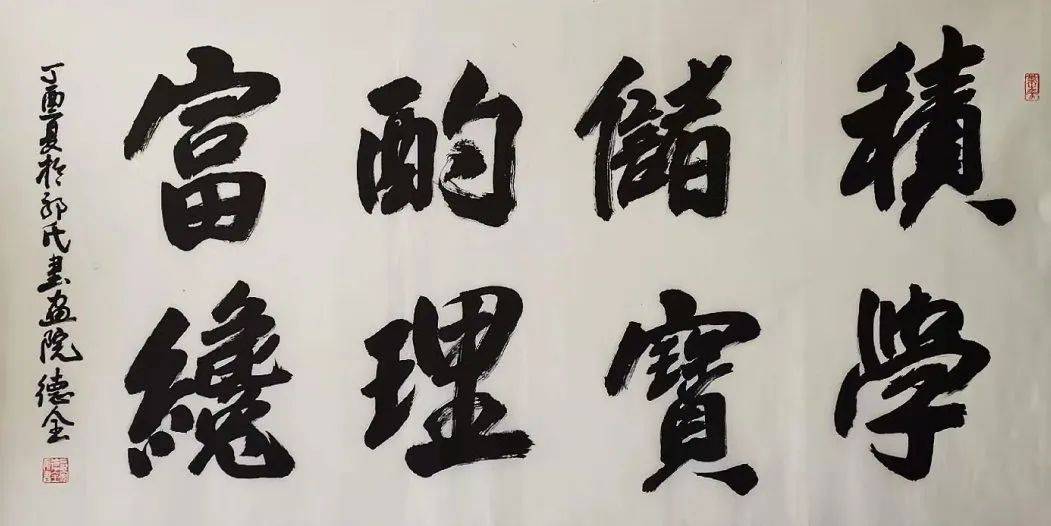 積學
儲寶
酌理
富纔
丁酉夏於郭氏書画院德全